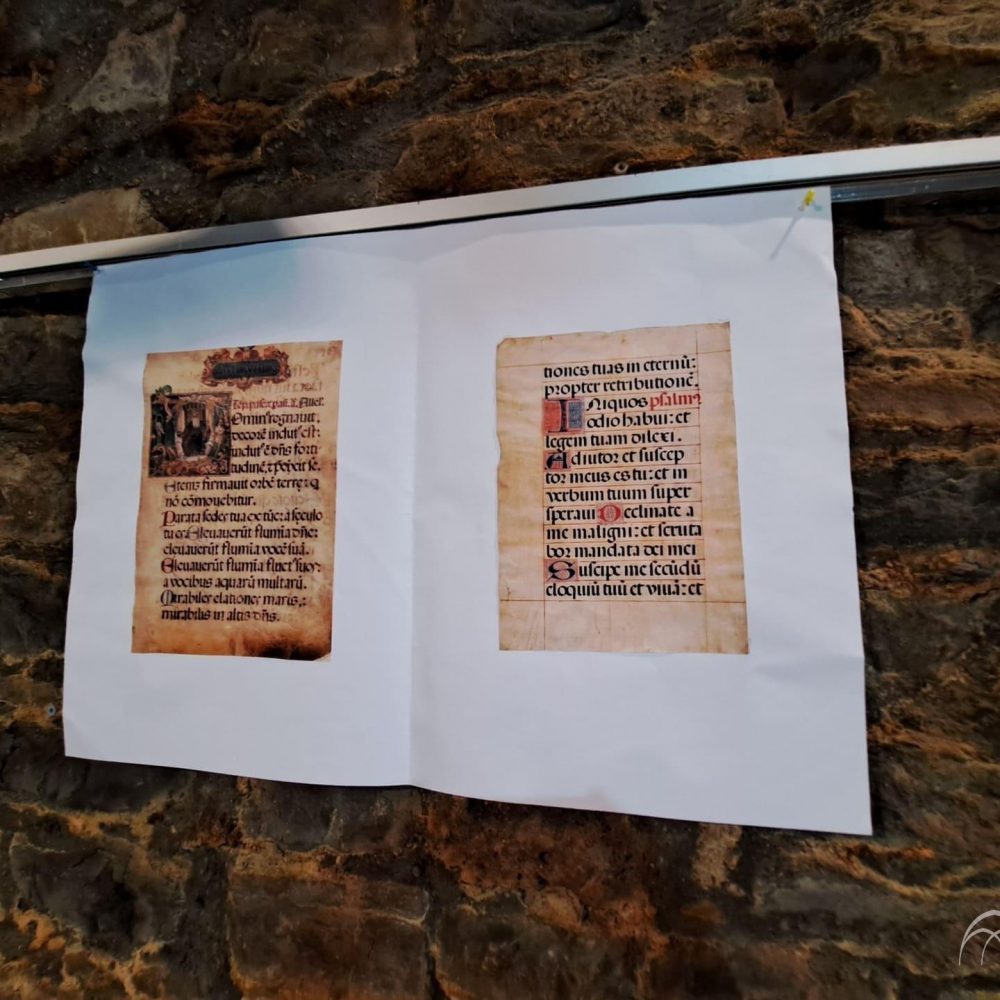 Omin⁹ regnauit.
decorē indut⁹ est:
indut⁹ ē dn̄s forti
tudinē, 
Etenim firmauit orbē terre: q
nō cōmouebitur.
Parata sedes tua ex tūc: a seculo
tu es. Eleuauerūt flumīa dn̄e:
eleuauerūt flumīa vocē suā.
Eleuauerūt flumīa fluct⁹ suos:
a vocibus aquarū multarū.
Mirabiles elationes maris,:
mirabilis in altis dn̄s.
tiones tuas in eternū:
propter retributionē.
INiquos psalm⁹
odio habui: et
legem tuam dilexi.
Adiutor et suscep
tor meus es tu: et in
verbum tuum super
speraui Declinate a
me maligni: et scruta
bor mandata dei mei
Suscipe me secūdū
eloquiū tuū et viuā: et